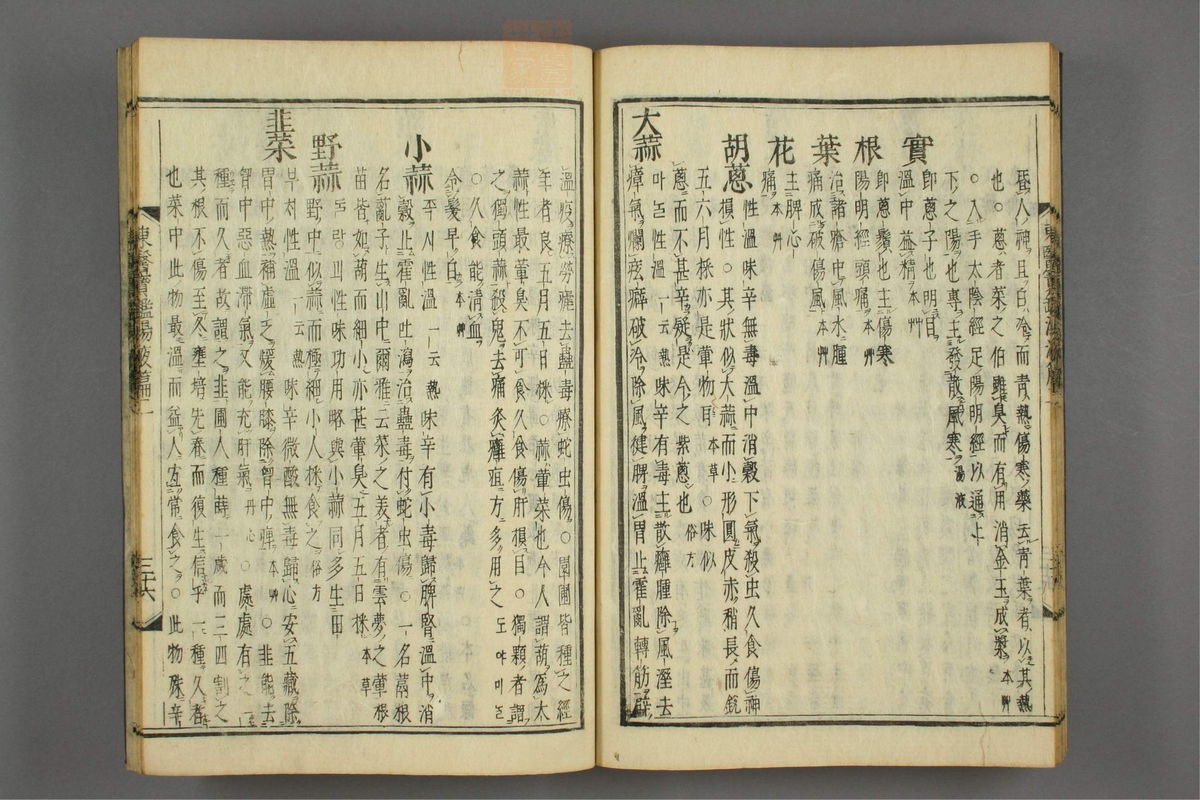 入神且白冷而青熱傷寒藥云青葉者以其熱
也○蔥者菜之伯雖臭而有用消金玉成漿本艸
○入手太陰經足陽明經以通上
下之陽也專主發散風寒湯液
實
即蔥子也明目
溫中益精本艸
根
即蔥鬚也主傷寒
陽明經頭痛本艸
葉
治諸瘡中風水腫
痛成破傷風本艸
花
主脾心
痛本艸
胡蔥
性溫味辛無毒溫中消穀下氣殺虫久食傷神
損性○其狀似大蒜而小形圓皮赤稍長而銳
五六月採亦是葷物耳本草○味似
蔥而不甚辛疑是今之紫蔥也俗方
大蒜
마늘性溫一云熱味辛有毒主散癰腫除風溼去
瘴氣爛痃癖破冷除風健脾溫胃止霍亂轉筋辟
溫疫療勞瘧去蠱毒療蛇虫傷○園圃皆種之經
年者良五月五日採○蒜葷菜也今人謂葫為大
蒜性最葷臭不可食久食傷肝損目○獨顆者謂
之獨頭蒜殺鬼去痛灸癰疽方多用之도야마늘
○久食能淸血
令髮早白本艸
小蒜
죡지性溫一云熱味辛有小毒歸脾腎溫中消
穀止霍亂吐瀉治蠱毒付蛇虫傷○一名蒚根
名䓞子生山中爾雅云菜之美者有雲夢之葷根
苗皆如葫而細小亦甚葷臭五月五日採本草
野蒜
돌랑괴性味功用略與小蒜同多生田
野中似蒜而極細小人採食之俗方
韭菜
부치性溫一云熱味辛微酸無毒歸心安五藏除
胃中熱補虛乏煖腰膝除胸中痺本艸○韭能去
胸中惡血滯氣又能充肝氣丹心○處處有之一
種而久者故謂之韭圃人種蒔一歲而三四割之
其根不傷至冬壅培先春而復生信乎一種久者
也菜中此物最溫而益人宜常食之○此物殊辛
東醫寶鑑湯液篇二
三十六